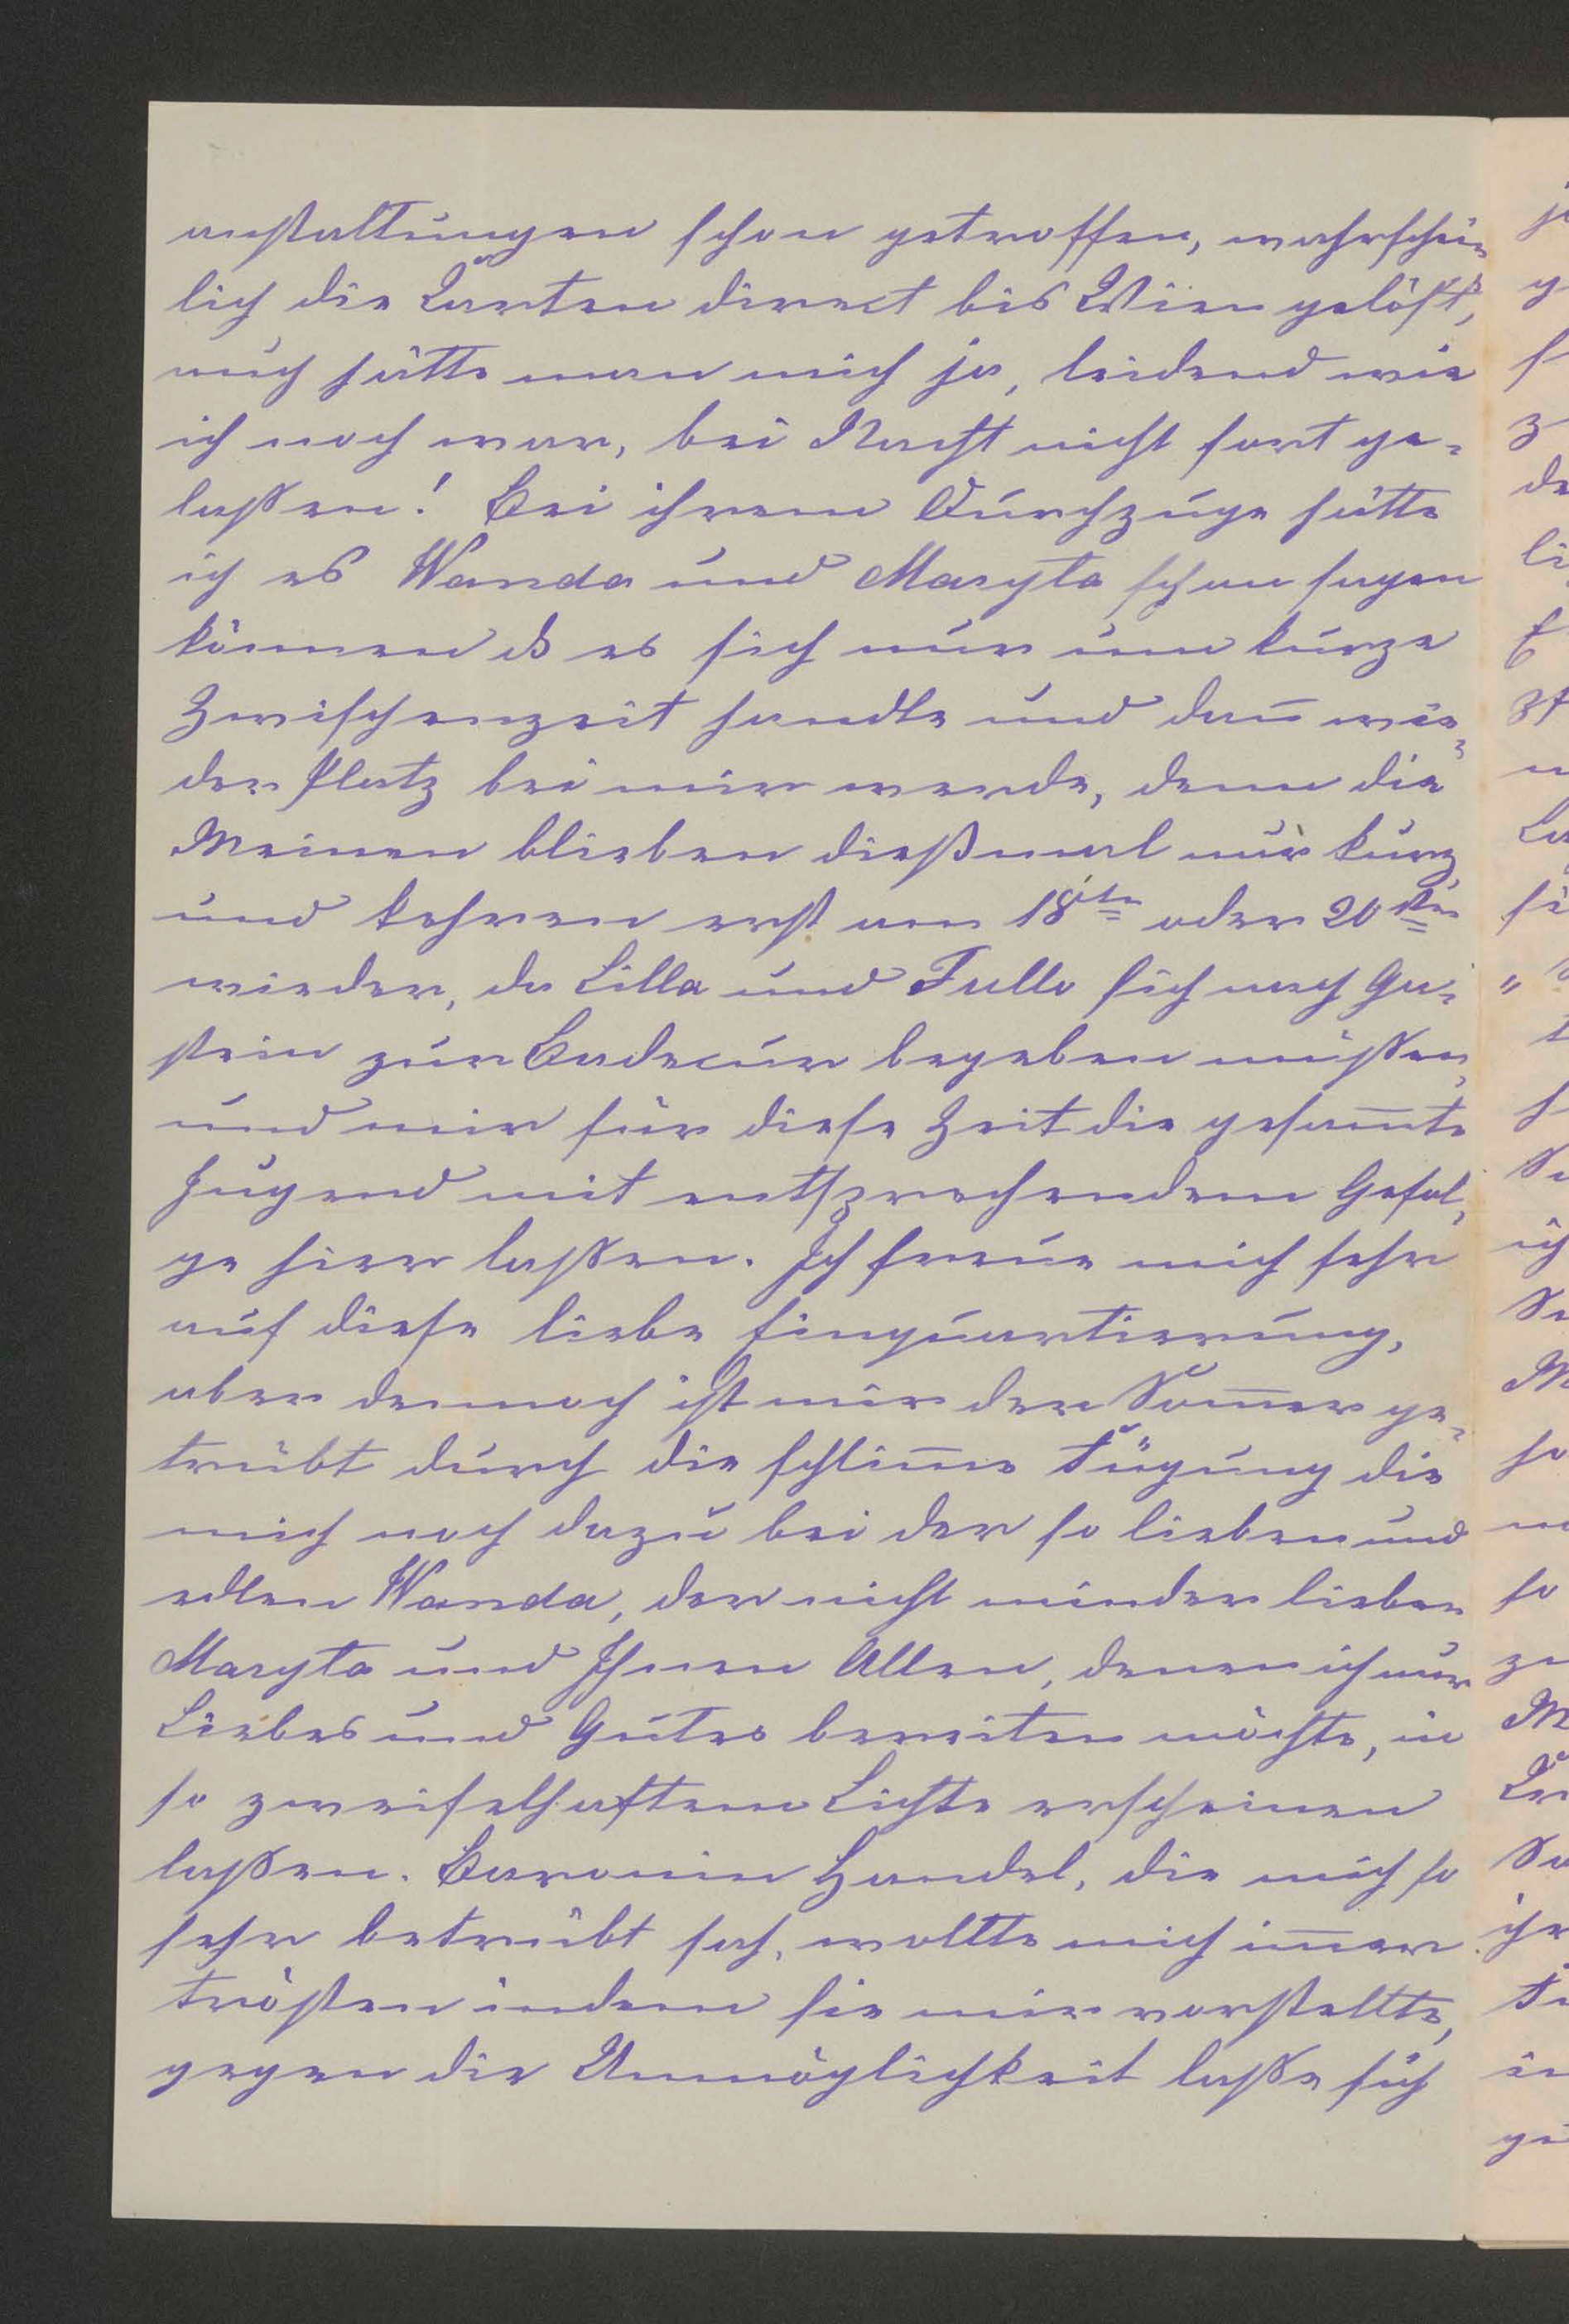 anstaltungen schon getroffen, wahrschein
lich die Karten direct bis Wien gelöst,
auch hätte man mich ja, leidend wie
ich noch war, bei Nacht nicht fort ge-
laßen! Bei ihrem Durchzuge hätte
ich es Wanda und Maryta schon sagen
können daß es sich nur um kurze
Zwischenzeit handle und dañ wie-
der Platz bei mir werde, denn die
Meinen blieben dießmal nur kurz
und kehren erst am 18ten oder 20sten
wieder, da Lilla und Fullo sich nach Ga-
stein zur Badecur begeben müßen,
und mir für diese Zeit die gesam̄te
Jugend mit entsprechendem Gefol-
ge hier laßen. Ich freue mich sehr
auf diese liebe Einquartierung,
aber dennoch ist mir der Som̄er ge-
trübt durch die schlim̄e Fügung die
mich noch dazu bei der so lieben und
edlen Wanda, der nicht minder lieben
Maryta und Ihnen Allen, denen ich nur
Liebes und Gutes bereiten möchte, in
so zweifelhaftem Lichte erscheinen
laßen. Baronin Handel, die mich so
sehr betrübt sah, wollte mich im̄er
trösten indem sie mir vorstellte,
gegen die Unmöglichkeit laße sich